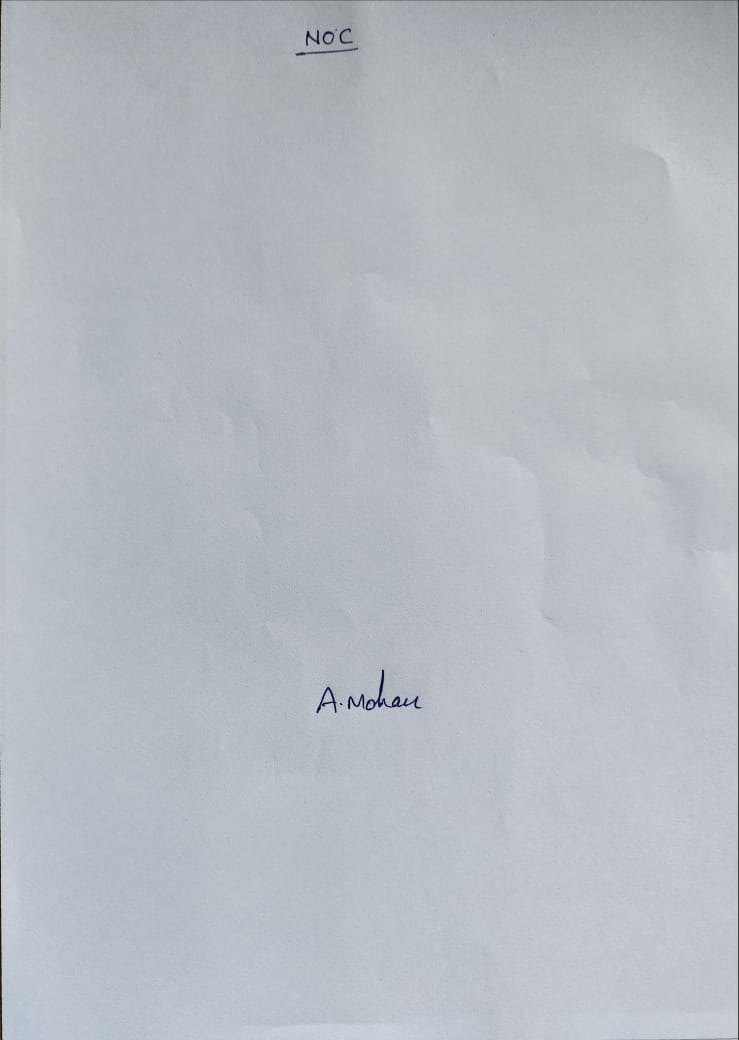 NOC
A. Mohan